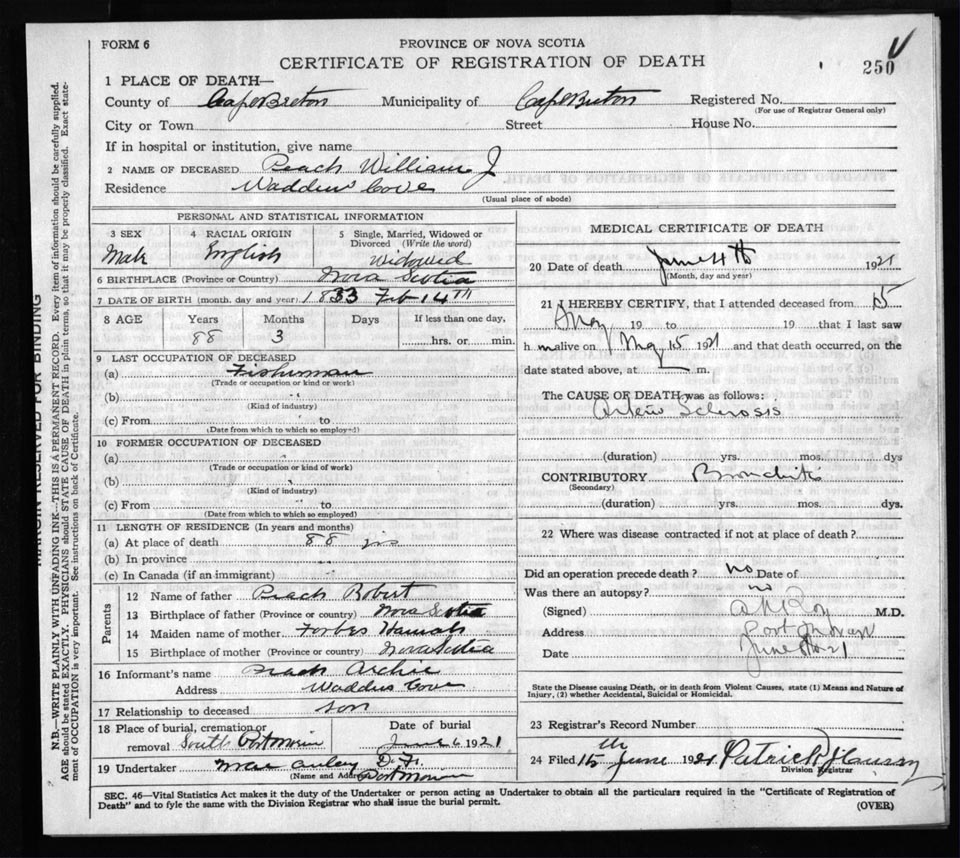 FORM 6
PROVINCE OF NOVA SCOTIA
CERTIFICATE OF REGISTRATION OF DEATH
250
1 PLACE OF DEATH—
County of Cape Breton Municipality of Cape Breton Registered No.
(For use of Registrar General only)
City or Town Street House No.
If in hospital or institution, give name
2 NAME OF DECEASED Peach William J
Residence Waddens Cove
(Usual place of abode)
PERSONAL AND STATISTICAL INFORMATION
3 SEX 4 RACIAL ORIGIN 5 Single, Married, Widowed or
Divorced (Write the word)
Male English Widowed
6 BIRTHPLACE (Province or Country) Nova Scotia
7 DATE OF BIRTH (month. day and year) 1833 Feb 14th
8 AGE Years Months Days If less than one day,
88 3 hrs. or min.
9 LAST OCCUPATION OF DECEASED
(a) Fisherman
(Trade or occupation or kind or work)
(b) "
(Kind of industry)
(c) From to
(Date from which to which so employed)
10 FORMER OCCUPATION OF DECEASED
(a)
(Trade or occupation or kind of work)
(b)
(Kind of industry)
(c) From to
(Date from which to which so employed)
11 LENGTH OF RESIDENCE (In years and months)
(a) At place of death 88 yrs
(b) In province "
(c) In Canada (if an immigrant)
Parents
12 Name of father Peach Robert
13 Birthplace of father (Province or country) Nova Scotia
14 Maiden name of mother Forbes Hannah
15 Birthplace of mother (Province or country) Nova Scotia
16 Informant's name Peach Archie
Address Waddens Cove
17 Relationship to deceased son
18 Place of burial, cremation or removal South Port Morien
Date of burial June 6 1921
19 Undertaker MacAuley D. F.
(Name and Address) Port Morien
MEDICAL CERTIFICATE OF DEATH
20 Date of death June 4th 1921
(Month, day and year)
21 I HEREBY CERTIFY, that I attended deceased from 15
May 19 to 19 that I last saw
h m alive on May 15 1921 and that death occurred, on the
date stated above, at m.
The CAUSE OF DEATH was as follows:
Arterio Sclerosis
(duration) yrs. mos. dys
CONTRIBUTORY Bronchitis
(Secondary)
(duration) yrs. mos. dys.
22 Where was disease contracted if not at place of death?
Did an operation precede death? no Date of
Was there an autopsy? no
(Signed) M.D.
Address Port Morien
Date June 21
State the Disease causing Death, or in death from Violent Causes, state (1) Means and Nature of
Injury, (2) whether Accidental, Suicidal or Homicidal.
23 Registrar's Record Number
24 Filed 15th June 1921 Patrick
Division Registrar
SEC. 46—Vital Statistics Act makes it the duty of the Undertaker or person acting as Undertaker to obtain all the particulars required in the "Certificate of Registration of
Death" and to fyle the same with the Division Registrar who shall issue the burial permit.
(OVER)
MARGIN RESERVED FOR BINDING
N.B.—WRITE PLAINLY WITH UNFADING INK—THIS IS A PERMANENT RECORD. Every item of information should be carefully supplied.
AGE should be stated EXACTLY. PHYSICIANS should STATE CAUSE OF DEATH in plain terms, so that it may be properly classified. Exact state-
ment of OCCUPATION is very important. See instructions on back of Certificate.